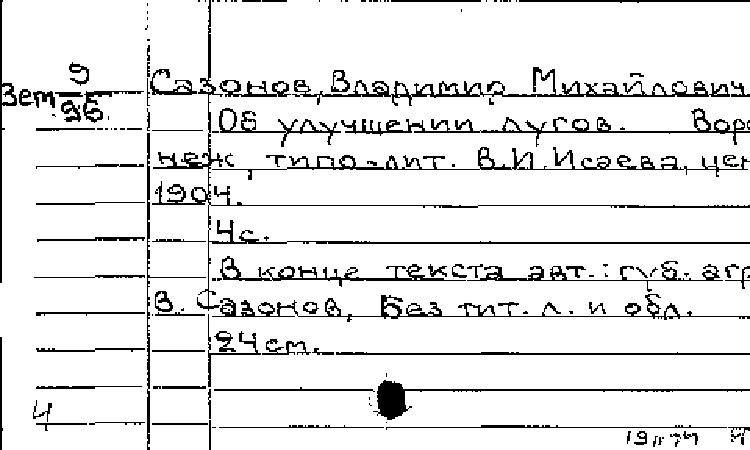 9
Зем 36
Сазонов, Владимир Михайлович
Об улучшении лугов. Воро
неж, типо-лит. В.И.Исаева, цен
1904.
4с.
В конце текста авт.: губ. агр
В. Сазонов, Без тит. л. и обл.
24 см.
4